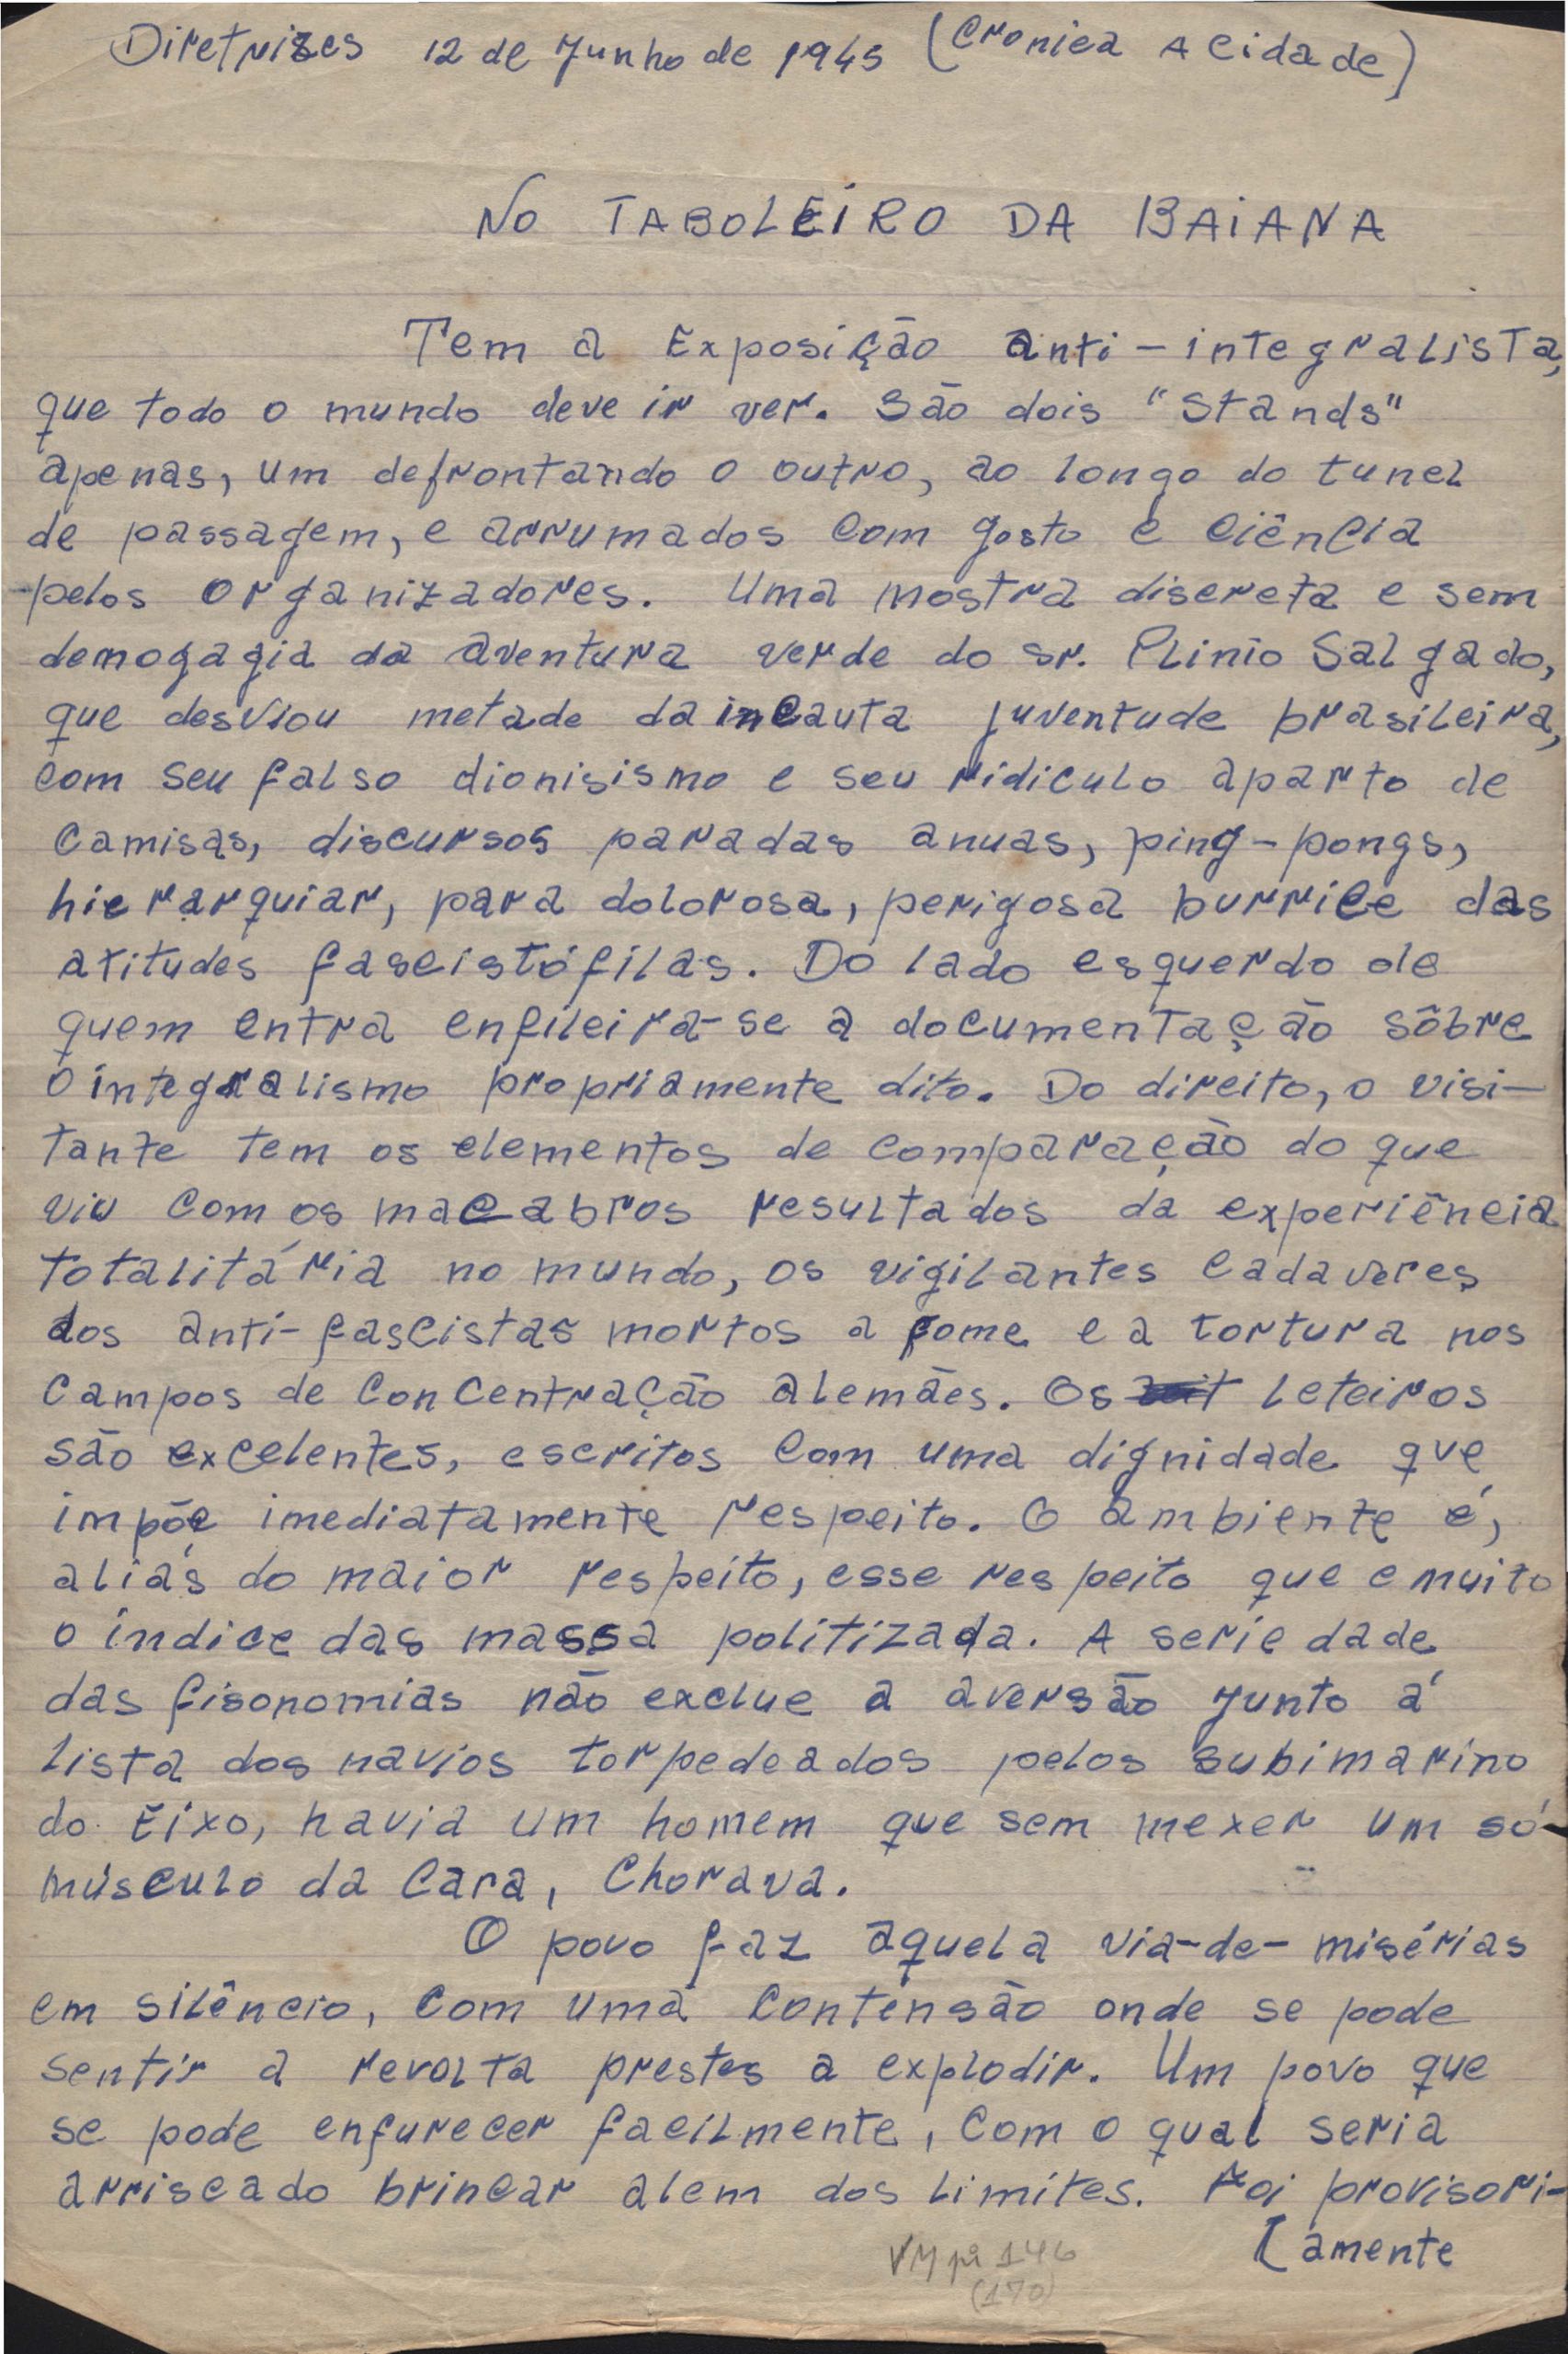 Diretrizes 12 de Junho de 1945 (Cronica A cidade)
NO TABOLEIRO DA BAIANA
Tem a Exposição anti-integralista,
que todo o mundo deve ir ver. São dois "Stands"
apenas, um defrontando o outro, ao longo do tunel
de passagem, e arrumados com gosto e ciência
pelos organizadores. Uma mostra discreta e sem
demogagia da aventura verde do sr. Plinio Salgado,
que desviou metade da incauta juventude brasileira,
com seu falso dionisismo e seu ridiculo aparto de
camisas, discursos paradas anuas, ping-pongs,
hierarquiar, para dolorosa, perigosa burrice das
atitudes fascistófilas. Do lado esquerdo de
quem entra enfileira-se a documentação sôbre
o integralismo propriamente dito. Do direito, o visi-
tante tem os elementos de comparação do que
viu com os macabros resultados da experiência
totalitária no mundo, os vigilantes cadaveres
dos anti-fascistas mortos a fome e a tortura nos
campos de concentração alemães. Os leteiros
são excelentes, escritos com uma dignidade que
impõe imediatamente respeito. O ambiente é,
aliás do maior respeito, esse respeito que e muito
o índice das massa politizada. A seriedade
das fisonomias não exclue a aversão junto á
lista dos navios torpedeados pelos subimarino
do Eixo, havia um homem que sem mexer um só
músculo da cara, chorava.
O povo faz aquela via-de-misérias
em silêncio, com uma contensão onde se pode
sentir a revolta prestes a explodir. Um povo que
se pode enfurecer facilmente, com o qual seria
arriscado brincar alem dos limites. Foi provisori-
[amente
VM pª 146
(170)